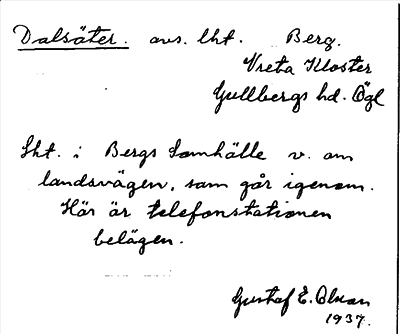 Dalsäter. avs. lht. Berg.
Vreta Kloster
Gullbergs hd. Ögl
Lht. i Bergs Samhälle v. om
landsvägen, som går igenom.
Här är telefonstationen
belägen.
Gustaf E. Olson
1937.